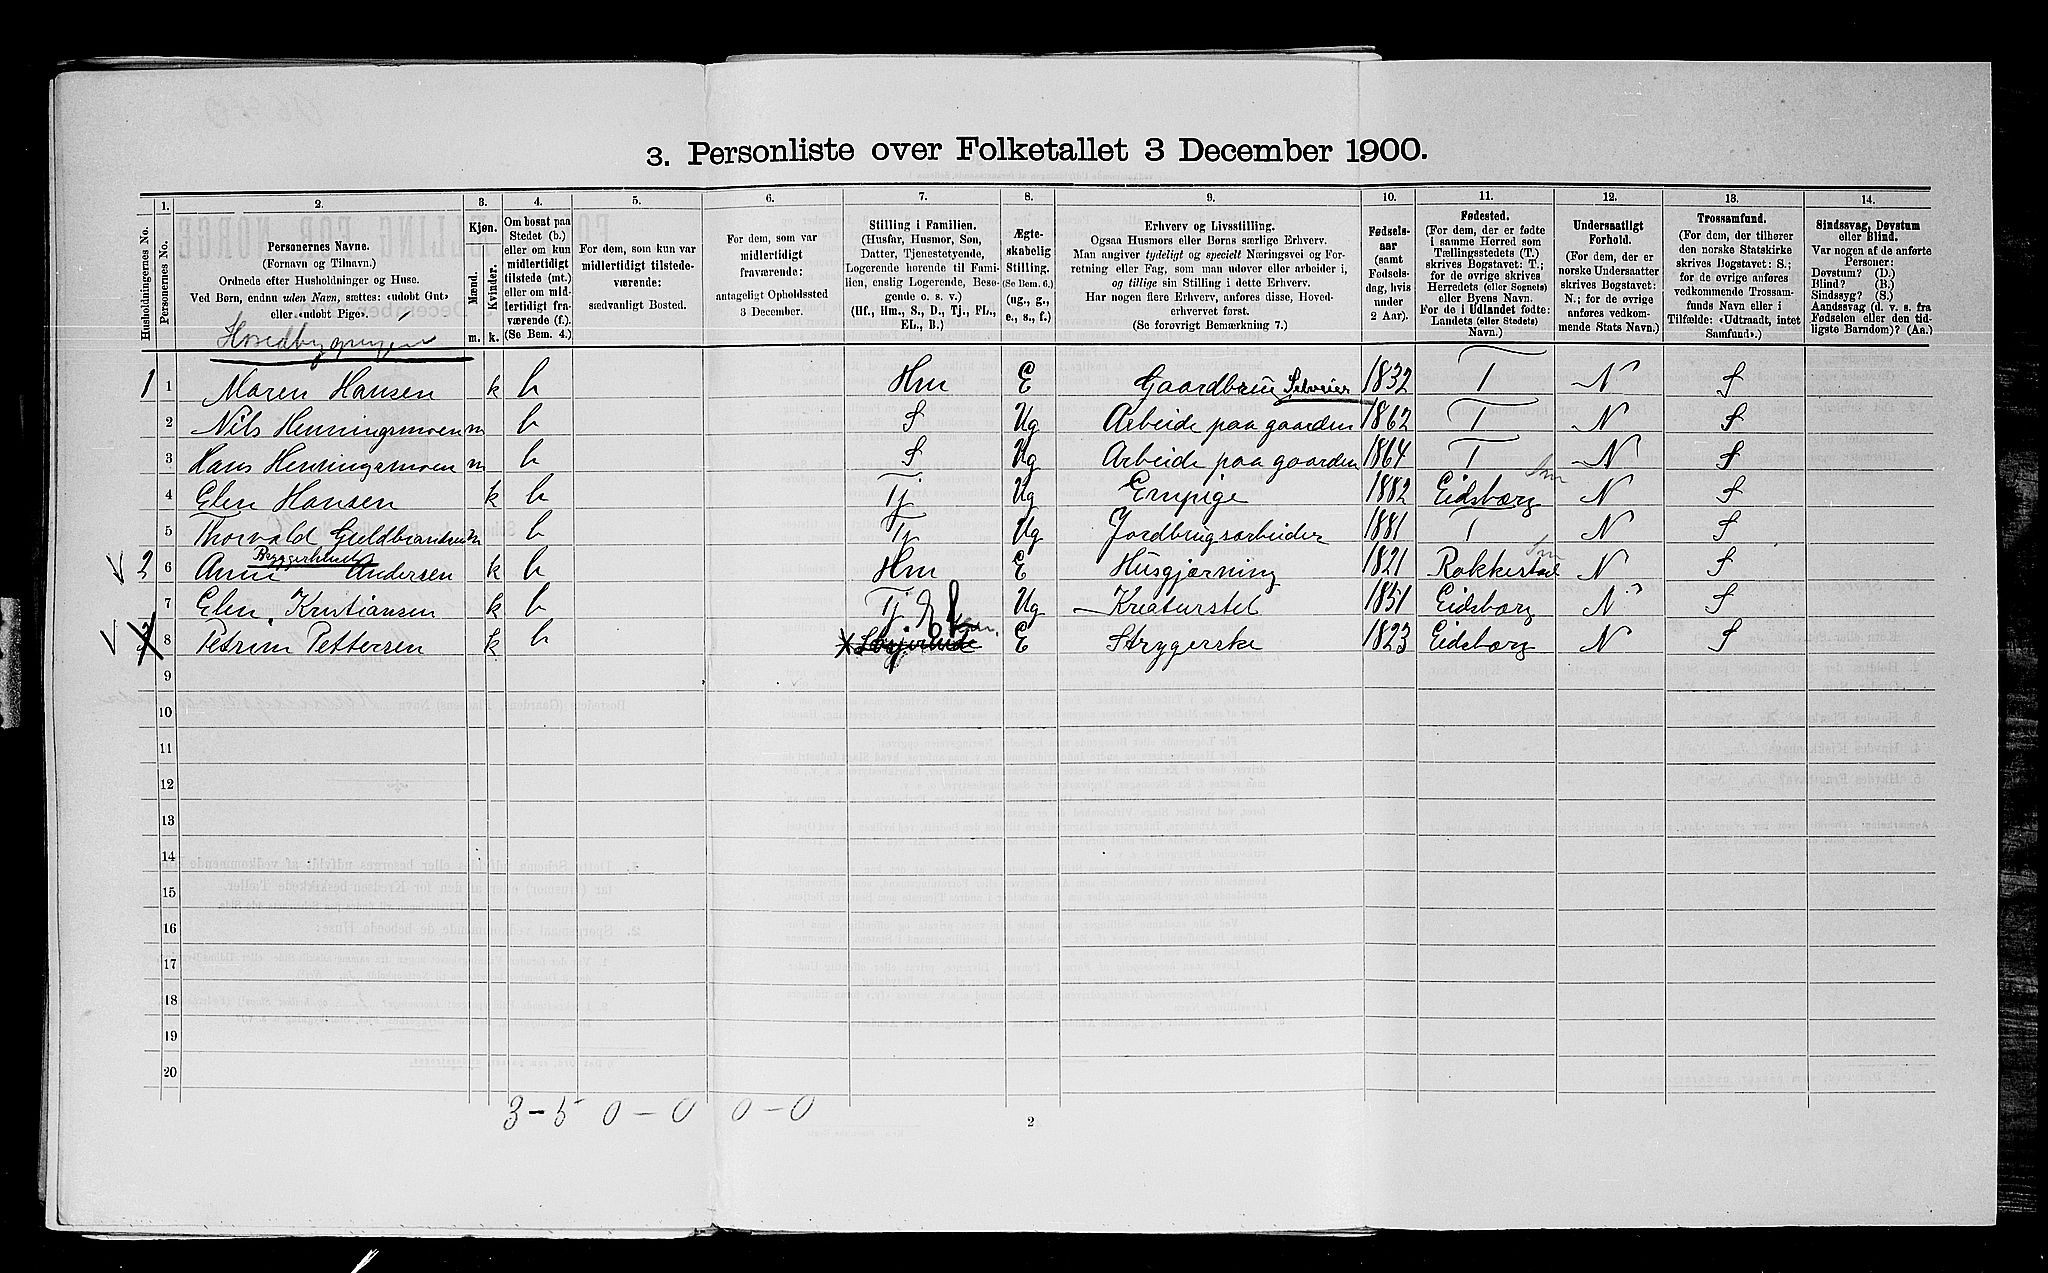 3. Personliste over Folketallet 3 December 1900.
1. 2. 3. 4. 5. 6. 7. 8. 9. 10. 11. 12. 13. 14.
Husholdningernes No.
Personernes No.
Personernes Navne.
(Fornavn og Tilnavn.)
Ordnede efter Husholdninger og Huse.
Ved Børn, endnu uden Navn, sættes: «udobt Gut»
eller «udobt Pige».
Kjøn.
Mænd.
Kvinder.
m. k.
Om bosat paa
Stedet (b.)
eller om kun
midlertidigt
tilstede (mt.)
eller om mid-
lertidigt fra-
værende (f.)
(Se Bem. 4.)
For dem, som kun var
midlertidigt tilstede-
værende:
sædvanligt Bosted.
For dem, som var
midlertidigt
fraværende:
antageligt Opholdssted
3 December.
Stilling i Familien.
(Husfar, Husmor, Søn,
Datter, Tjenestetyende,
Logerende hørende til Fami-
lien, enslig Logerende, Besø-
gende o. s. v.)
(Hf., Hm., S., D., Tj., FL.,
EL., B.)
Ægte-
skabelig
Stilling.
(Se Bem. 6.)
(ug., g.,
e., s., f.)
Erhverv og Livsstilling.
Ogsaa Husmors eller Børns særlige Erhverv.
Man angiver tydeligt og specielt Næringsvei og For-
retning eller Fag, som man udøver eller arbeider i,
og tillige sin Stilling i dette Erhverv.
Har nogen flere Erhverv, anføres disse, Hoved-
erhvervet først.
(Se forøvrigt Bemærkning 7.)
Fødsels-
aar
(samt
Fødsels-
dag, hvis
under
2 Aar).
Fødested.
(For dem, der er fødte
i samme Herred som
Tællingsstedets (T.)
skrives Bogstavet: T.;
for de øvrige skrives
Herredets (eller Sognets)
eller Byens Navn.
For de i Udlandet fødte:
Landets (eller Stedets)
Navn.)
Undersaatligt
Forhold.
(For dem, der er
norske Undersaatter
skrives Bogstavet:
N.; for de øvrige
anføres vedkom-
mende Stats Navn.)
Trossamfund.
(For dem, der tilhører
den norske Statskirke
skrives Bogstavet: S.;
for de øvrige anføres
vedkommende Trossam-
funds Navn eller i
Tilfælde: «Udtraadt, intet
Samfund».)
Sindssvag, Døvstum
eller Blind.
Var nogen af de anførte
Personer:
Døvstum? (D.)
Blind? (B.)
Sindssyg? (S.)
Aandssvag (d. v. s. fra
Fødselen eller den tid-
ligste Barndom)? (Aa.)
Hovedbygningen
1 1 Maren Hansen k b Hm E Gaardbrug Selveier 1832 T N S
2 Nils Henningsmoen m b S Ug Arbeide paa gaarden 1862 T N S
3 Hans Henningsmoen m b S Ug Arbeide paa gaarden 1864 T N S
4 Elen Hansen k b Tj Ug Empige 1882 Eidsberg Sm N S
5 Thorvald Guldbrandsen m b Tj Ug Jordbrugsarbeider 1881 T N S
Bryggerhuset
2 6 Anne Andersen k b Hm E Husgjærning 1821 Rakkestad Sm N S
7 Elen Kristiansen k b Tj Ug Kreaturstel 1851 Eidsberg N S
8 Petrine Pettersen k b E L E Strygerske 1823 Eidsberg N S
9
10
11
12
13
14
15
16
17
18
19
20
3-5 0-0 0-0
2